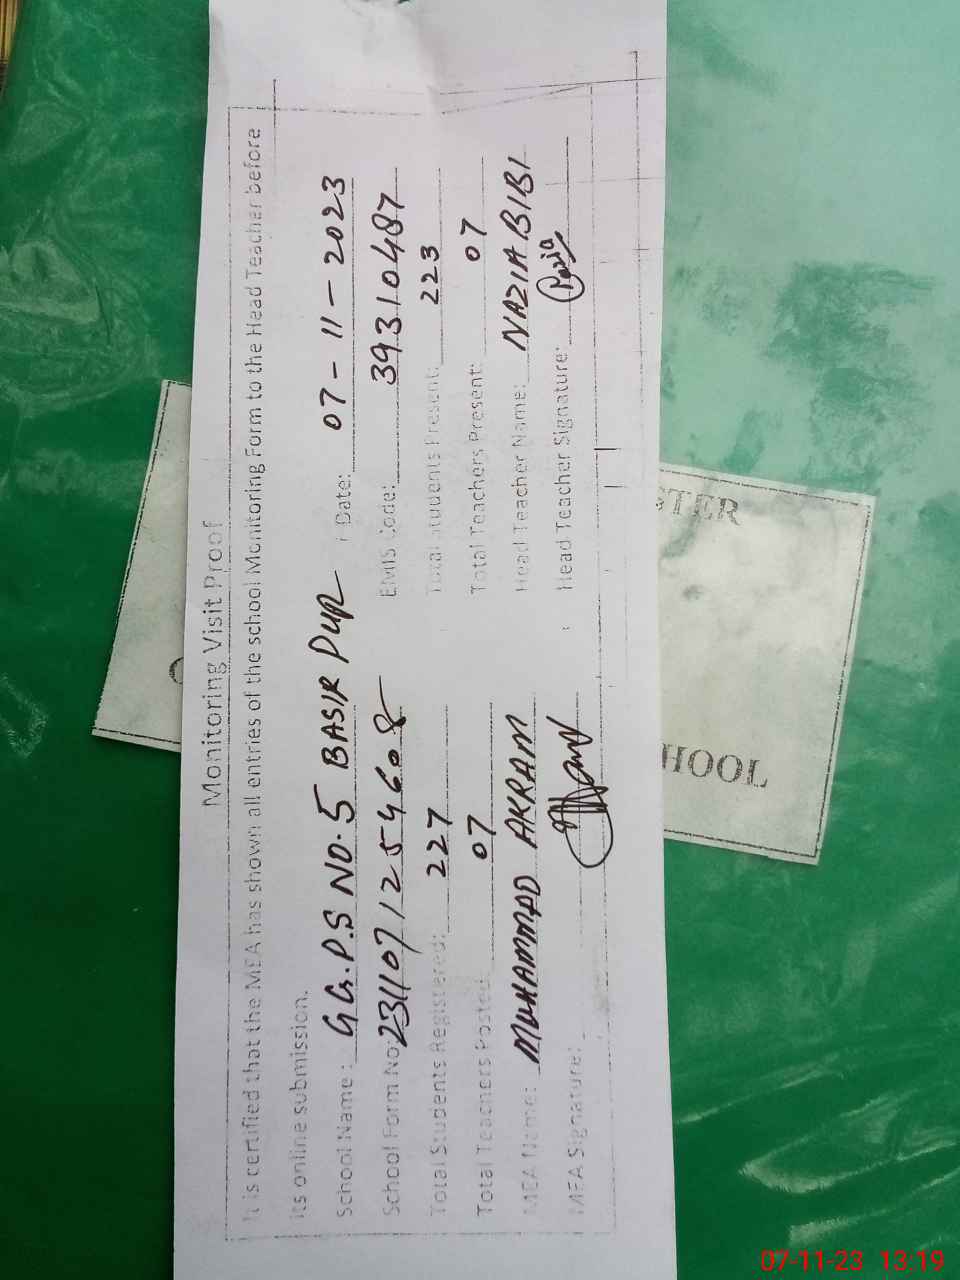 Monitoring Visit Proof
It is certified that the MEA has shown all entries of the school Monitoring Form to the Head Teacher before
its online submission.
School Name: G G.P.S NO.5 BASIR PUR Date: 07-11-2023
School Form No: 2311071254608 EMIS Code: 39310487
Total Students Registered: 227 Total Students Present: 223
Total Teachers Posted: 07 Total Teachers Present: 07
MEA Name: MUHAMMAD AKRAM Head Teacher Name: NAZIA BIBI
MEA Signature: Head Teacher Signature:
STER
HOOL
07-11-23 13:19